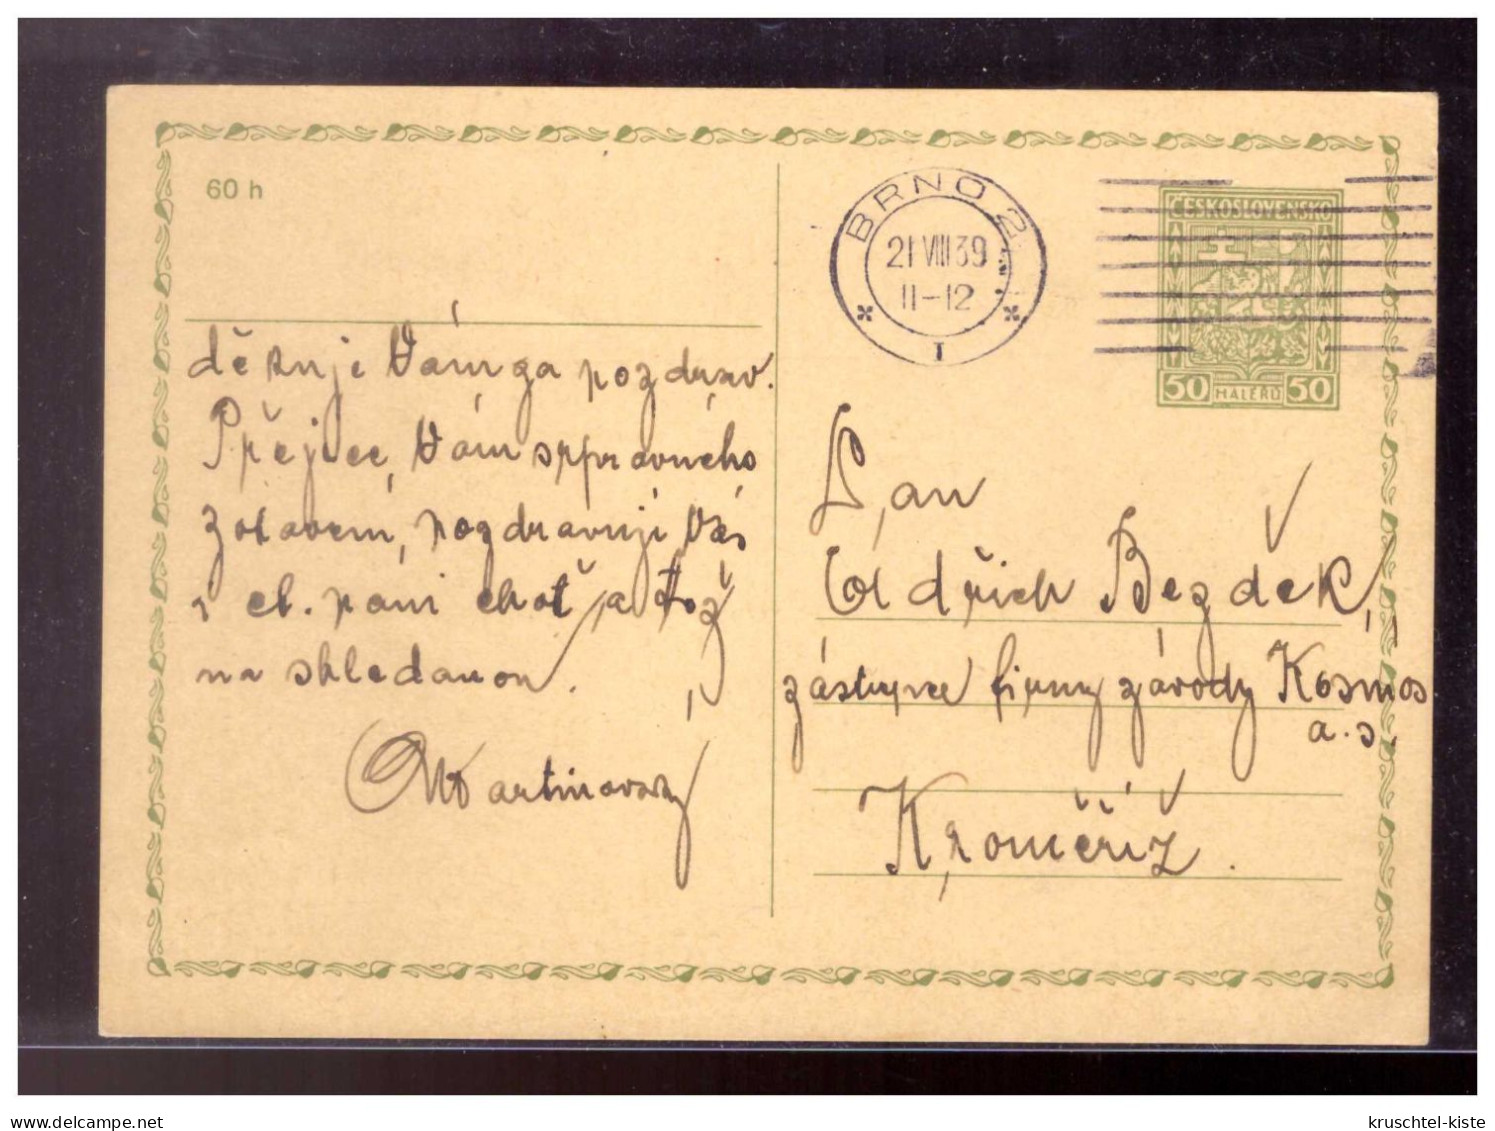 60 h
děkuje Vám za pozdrav.
Přejíce, Vám správného
zotavení, pozdravuji Vás
i ct. paní choť, a též
na shledanou.
Martinovský
BRNO 2
21 VIII 39
11-12
1
ČESKOSLOVENSKO
50 HALÉŘŮ 50
Pan
Oldřich Bezděk,
zástupce firmy závody Kosmos
a.s,
Kroměříž.
delcampe.net
kruschtel-kiste